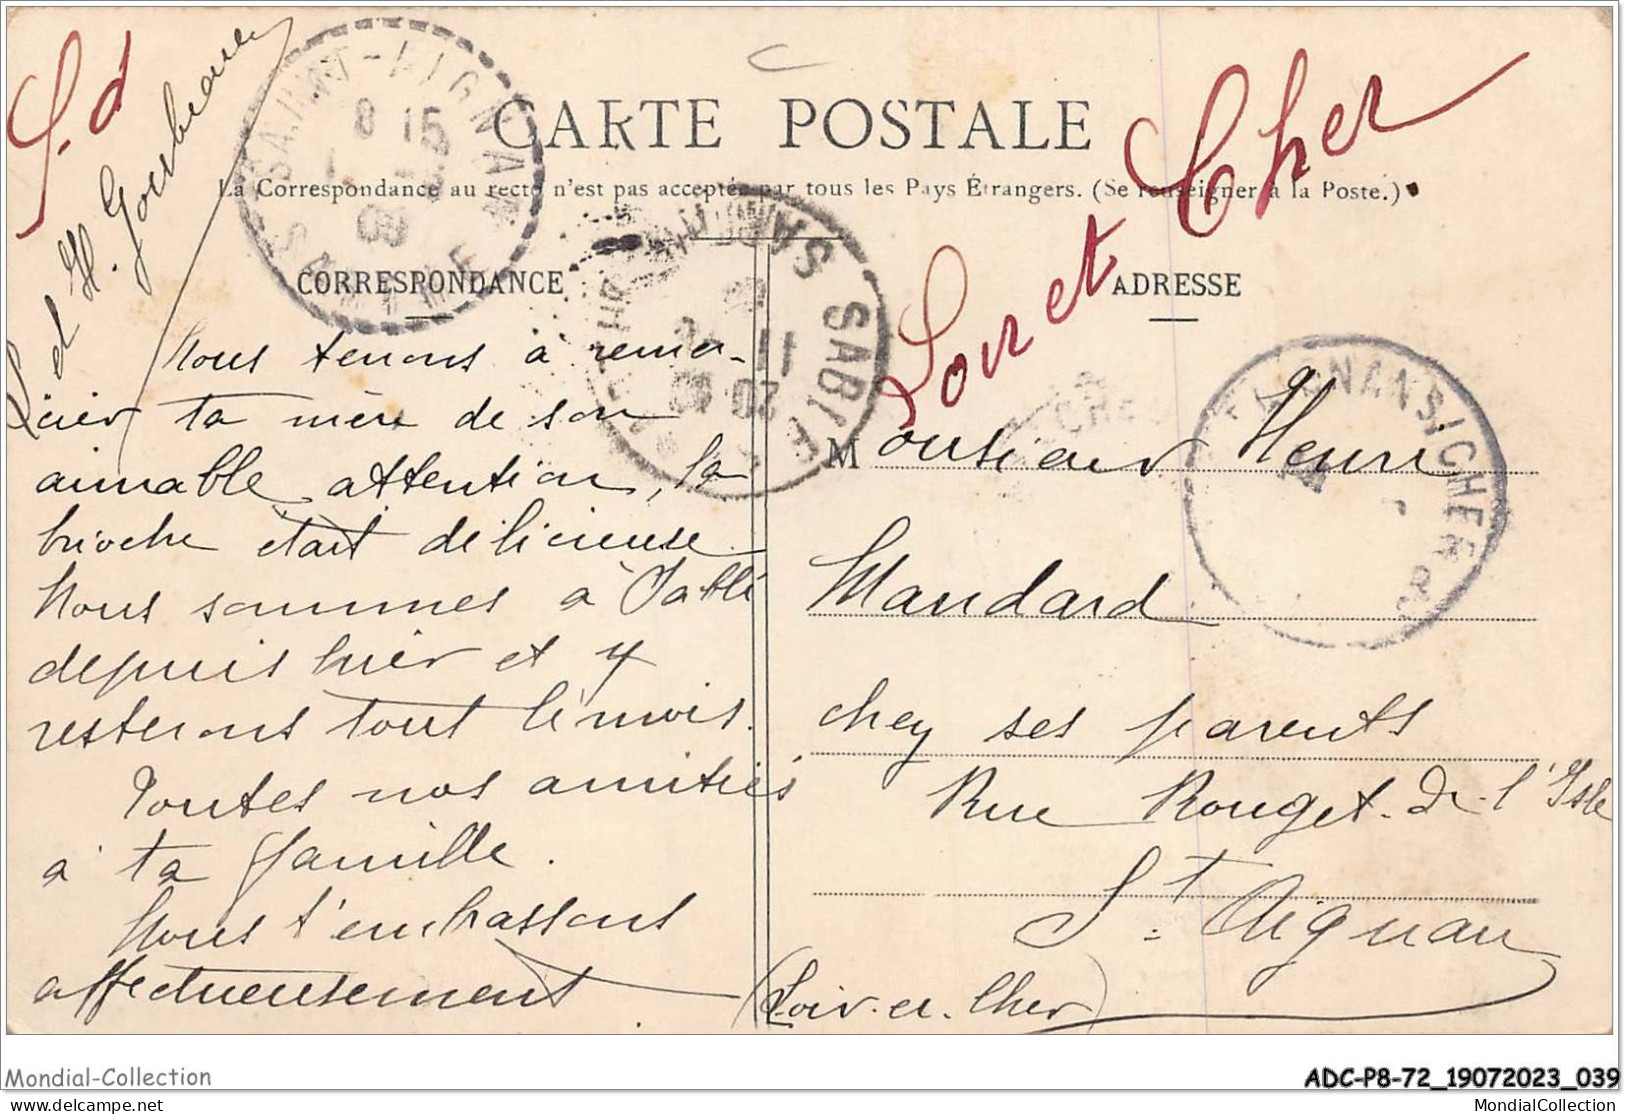 S. d
L. et H.
CARTE POSTALE
La Correspondance au recto n'est pas acceptée par tous les Pays Étrangers. (Se renseigner à la Poste.)
Loir et Cher
CORRESPONDANCE
Nous tenons à remer-
cier ta mère de son
aimable attention, la
brioche était délicieuse
Nous sommes à Sablé
depuis hier et y
resterons tout le mois.
Toutes nos amitiés
à ta famille.
Nous t'embrassons
affectueusement
ADRESSE
Monsieur Henri
Mandard
chez ses parents
Rue Rouget-de-l'Isle
St Aignan
(Loir-et-Cher)
SAINT-AIGNAN
8 15
09
SABLÉ
SARTHE
11
ST AIGNAN S/CHER
Mondial-Collection
ADC-P8-72_19072023_039
delcampe.net
MondialCollection